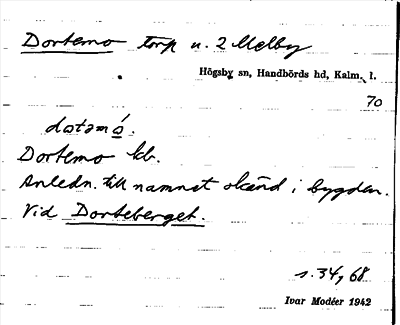 Dortemo torp u. 2 Melby
Högsby sn, Handbörds hd, Kalm. l.
70
dɷtəmó.
Dortemo kb.
Anledn. till namnet okänd i bygden.
Vid Dorteberget.
s. 34, 68
Ivar Modéer 1942